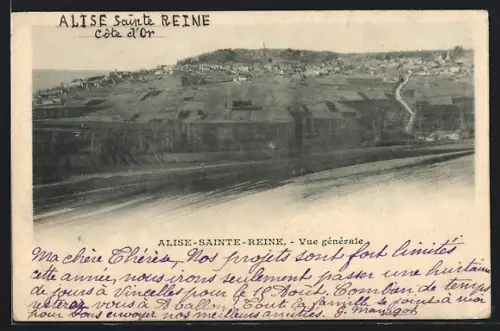 ALISE Sainte REINE
Côte d'Or
ALISE-SAINTE-REINE. - Vue générale
Ma chère Thérèse, Nos projets sont fort limités
cette année, nous irons seulement passer une huitaine
de jours à Vincelles pour le 15 Août. Combien de temps
resterez vous à Toute la famille se joint à moi
pour vous envoyer nos meilleures amitiés. G.